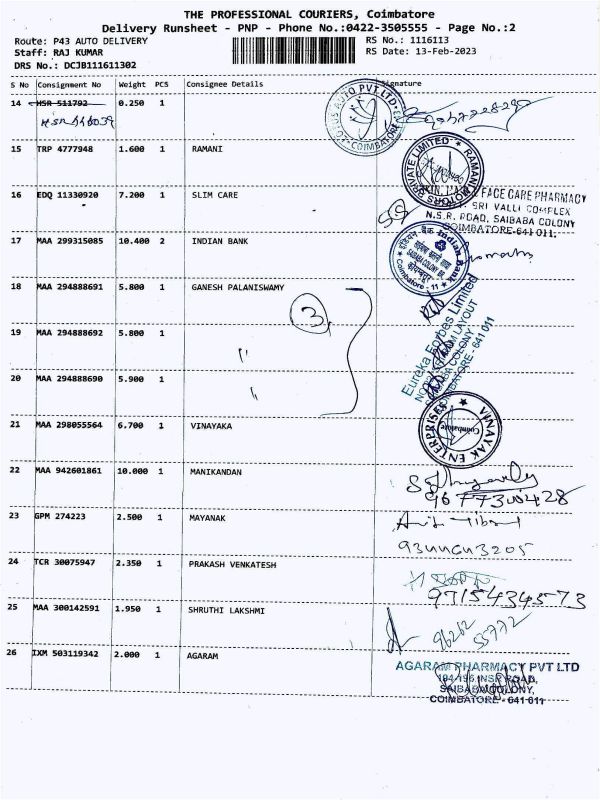 THE PROFESSIONAL COURIERS, Coimbatore
Delivery Runsheet - PNP - Phone No.:0422-3505555 - Page No.:2
Route: P43 AUTO DELIVERY RS No.: 1116113
Staff: RAJ KUMAR RS Date: 13-Feb-2023
DRS No.: DCJB111611302
S No Consignment No Weight PCS Consignee Details Signature
14 HSR 511792 0.250 1
15 TRP 4777948 1.600 1 RAMANI
RAMANI MOTORS PRIVATE LIMITED
16 EDQ 11330920 7.200 1 SLIM CARE
FACE CARE PHARMACY
SRI VALLI COMPLEX
N.S.R. ROAD, SAIBABA COLONY
COIMBATORE-641 011.
17 MAA 299315085 10.400 2 INDIAN BANK
Indian Bank
Coimbatore - 11
18 MAA 294888691 5.800 1 GANESH PALANISWAMY
3
19 MAA 294888692 5.800 1 "
Eureka Forbes Limited
20 MAA 294888690 5.900 1 "
21 MAA 298055564 6.700 1 VINAYAKA
VINAYAK ENTERPRISES
Coimbatore
22 MAA 942601861 10.000 1 MANIKANDAN
23 GPM 274223 2.500 1 MAYANAK
24 TCR 30075947 2.350 1 PRAKASH VENKATESH
9715434573
25 MAA 300142591 1.950 1 SHRUTHI LAKSHMI
96262 55772
26 IXM 503119342 2.000 1 AGARAM
AGARAM PHARMACY PVT LTD
194-196, NSR ROAD,
SAIBABA COLONY,
COIMBATORE - 641 011